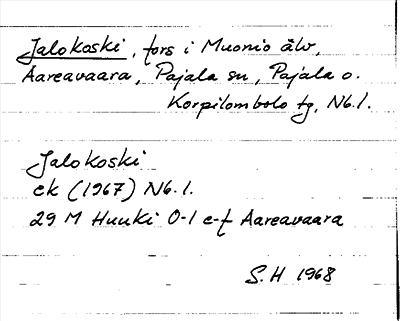 Jalokoski, fors i Muonio älv,
Aareavaara, Pajala sn, Pajala o.
Korpilombolo tg, Nb.l.
Jalokoski
ek (1967) Nb.l.
29 M Huuki 0-1 e-f Aareavaara
S.H 1968